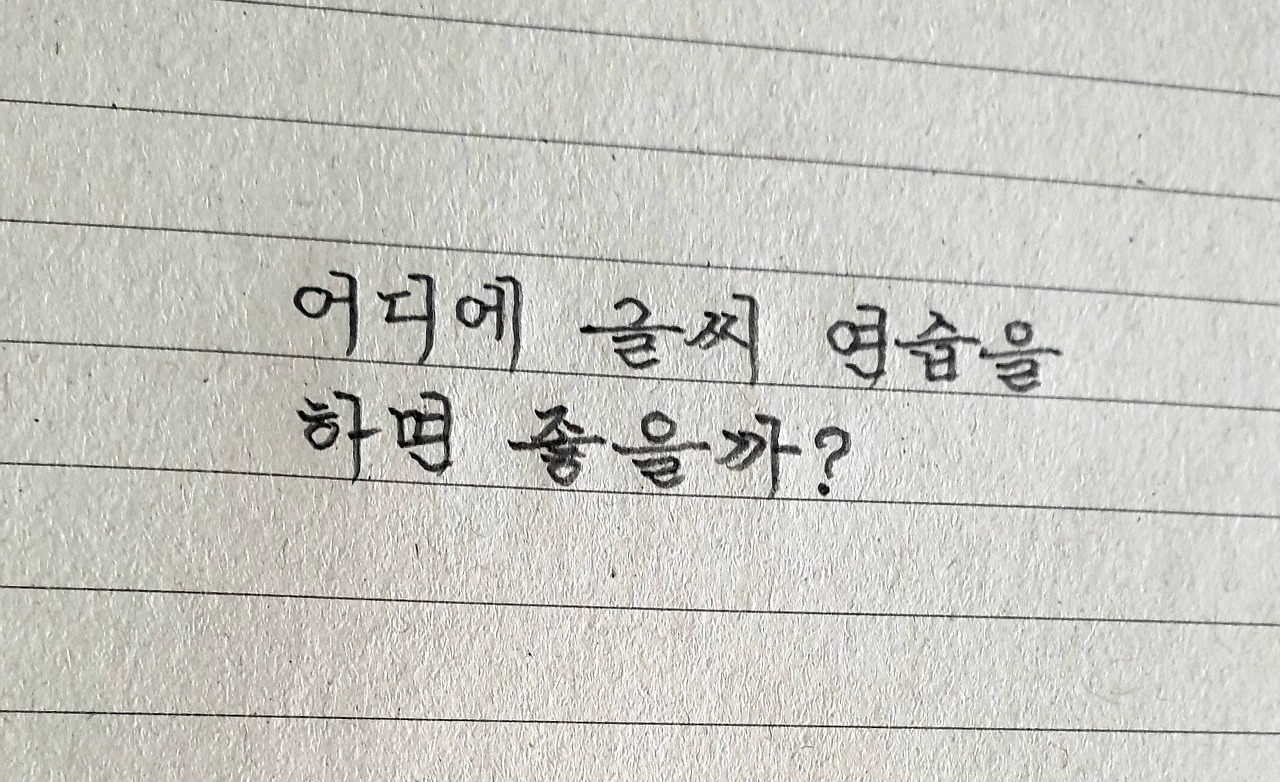 어디에 글찌 연습을
하면 좋을까?